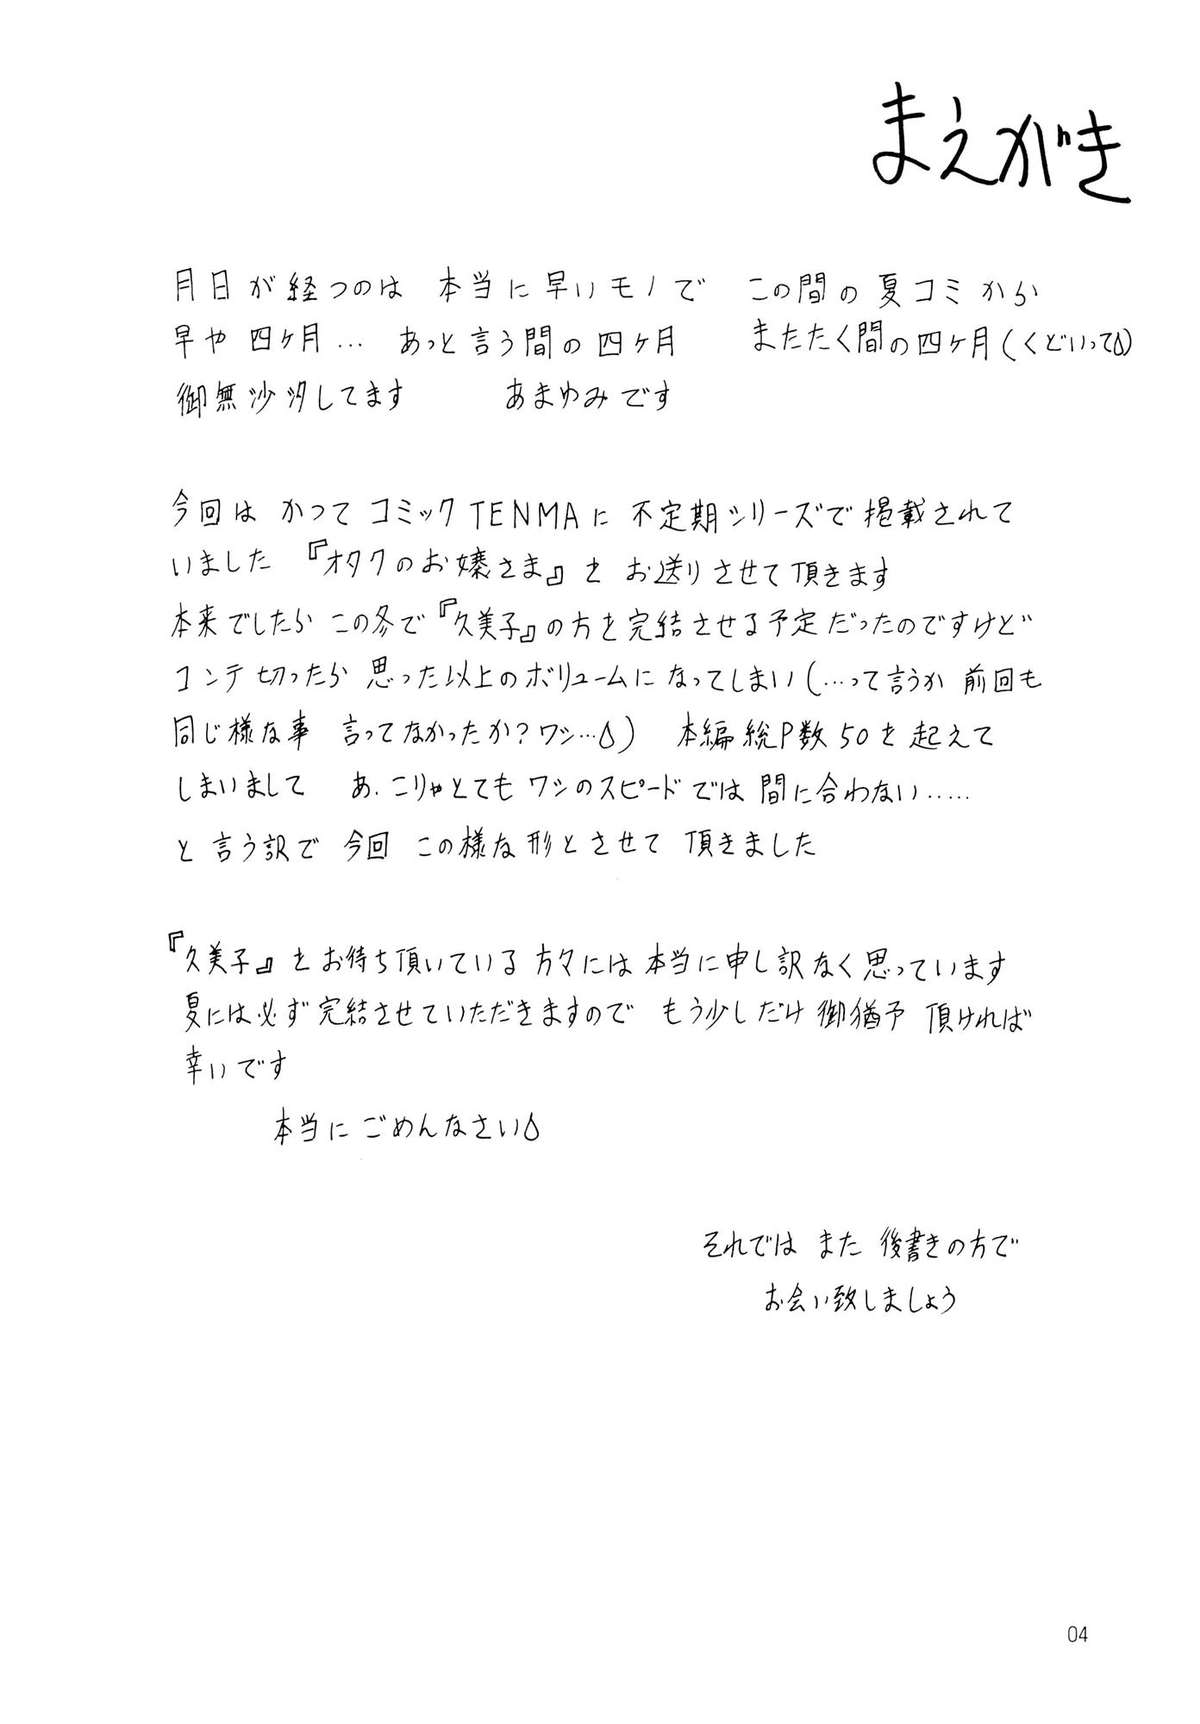 まえがき
月日が経つのは 本当に早いモノで この間の夏コミから
早や四ヶ月… あっと言う間の四ヶ月 またたく間の四ヶ月(くどいって)
御無沙汐してます あまゆみです
今回は かつて コミックTENMAに 不定期シリーズで掲載されて
いました 『オタクのお嬢さま』を お送りさせて頂きます
本来でしたら この冬で『久美子』の方を完結させる予定だったのですけど
コンテ切ったら 思った以上のボリュームに なってしまい(…って言うか 前回も
同じ様な事 言ってなかったか?ワシ…) 本編総P数50を起えて
しまいまして あ、こりゃとても ワシのスピードでは 間に合わない……
と言う訳で 今回 この様な形とさせて 頂きました
『久美子』をお待ち頂いている 方々には本当に申し訳なく思っています
夏には必ず完結させていただきますので もう少しだけ御猶予 頂ければ
幸いです
本当に ごめんなさい
それでは また 後書きの方で
お会い致しましょう
04